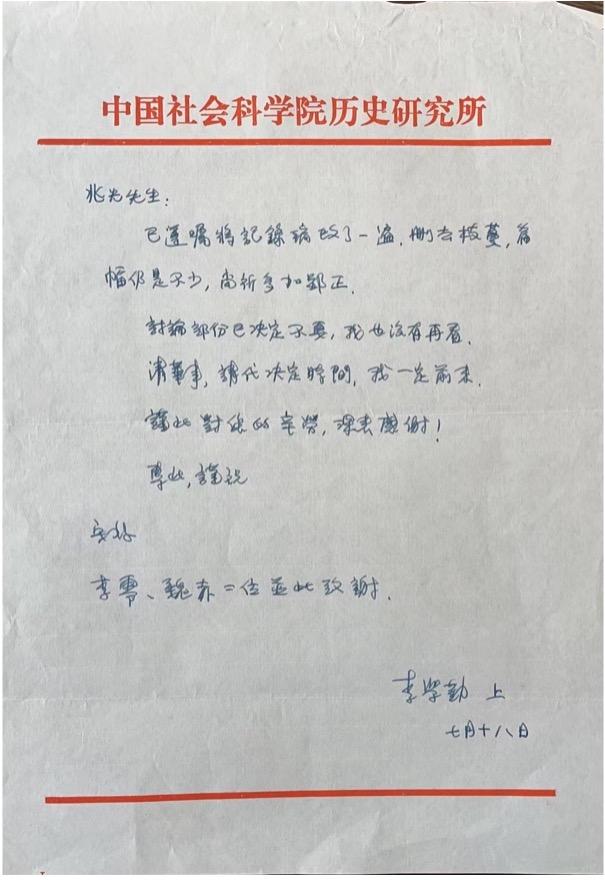 中国社会科学院历史研究所
兆光先生：
已遵嘱將記錄稿改了一遍，刪去枝蔓，篇
幅仍是不少，尚祈多加郢正．
討論部份已决定不要，我也没有再看．
清華事，請代决定時間，我一定前来．
謹此對您的辛勞，深表感谢！
專此，謹祝
安好
李零、魏赤二位並此致謝．
李学勤 上
七月十八日